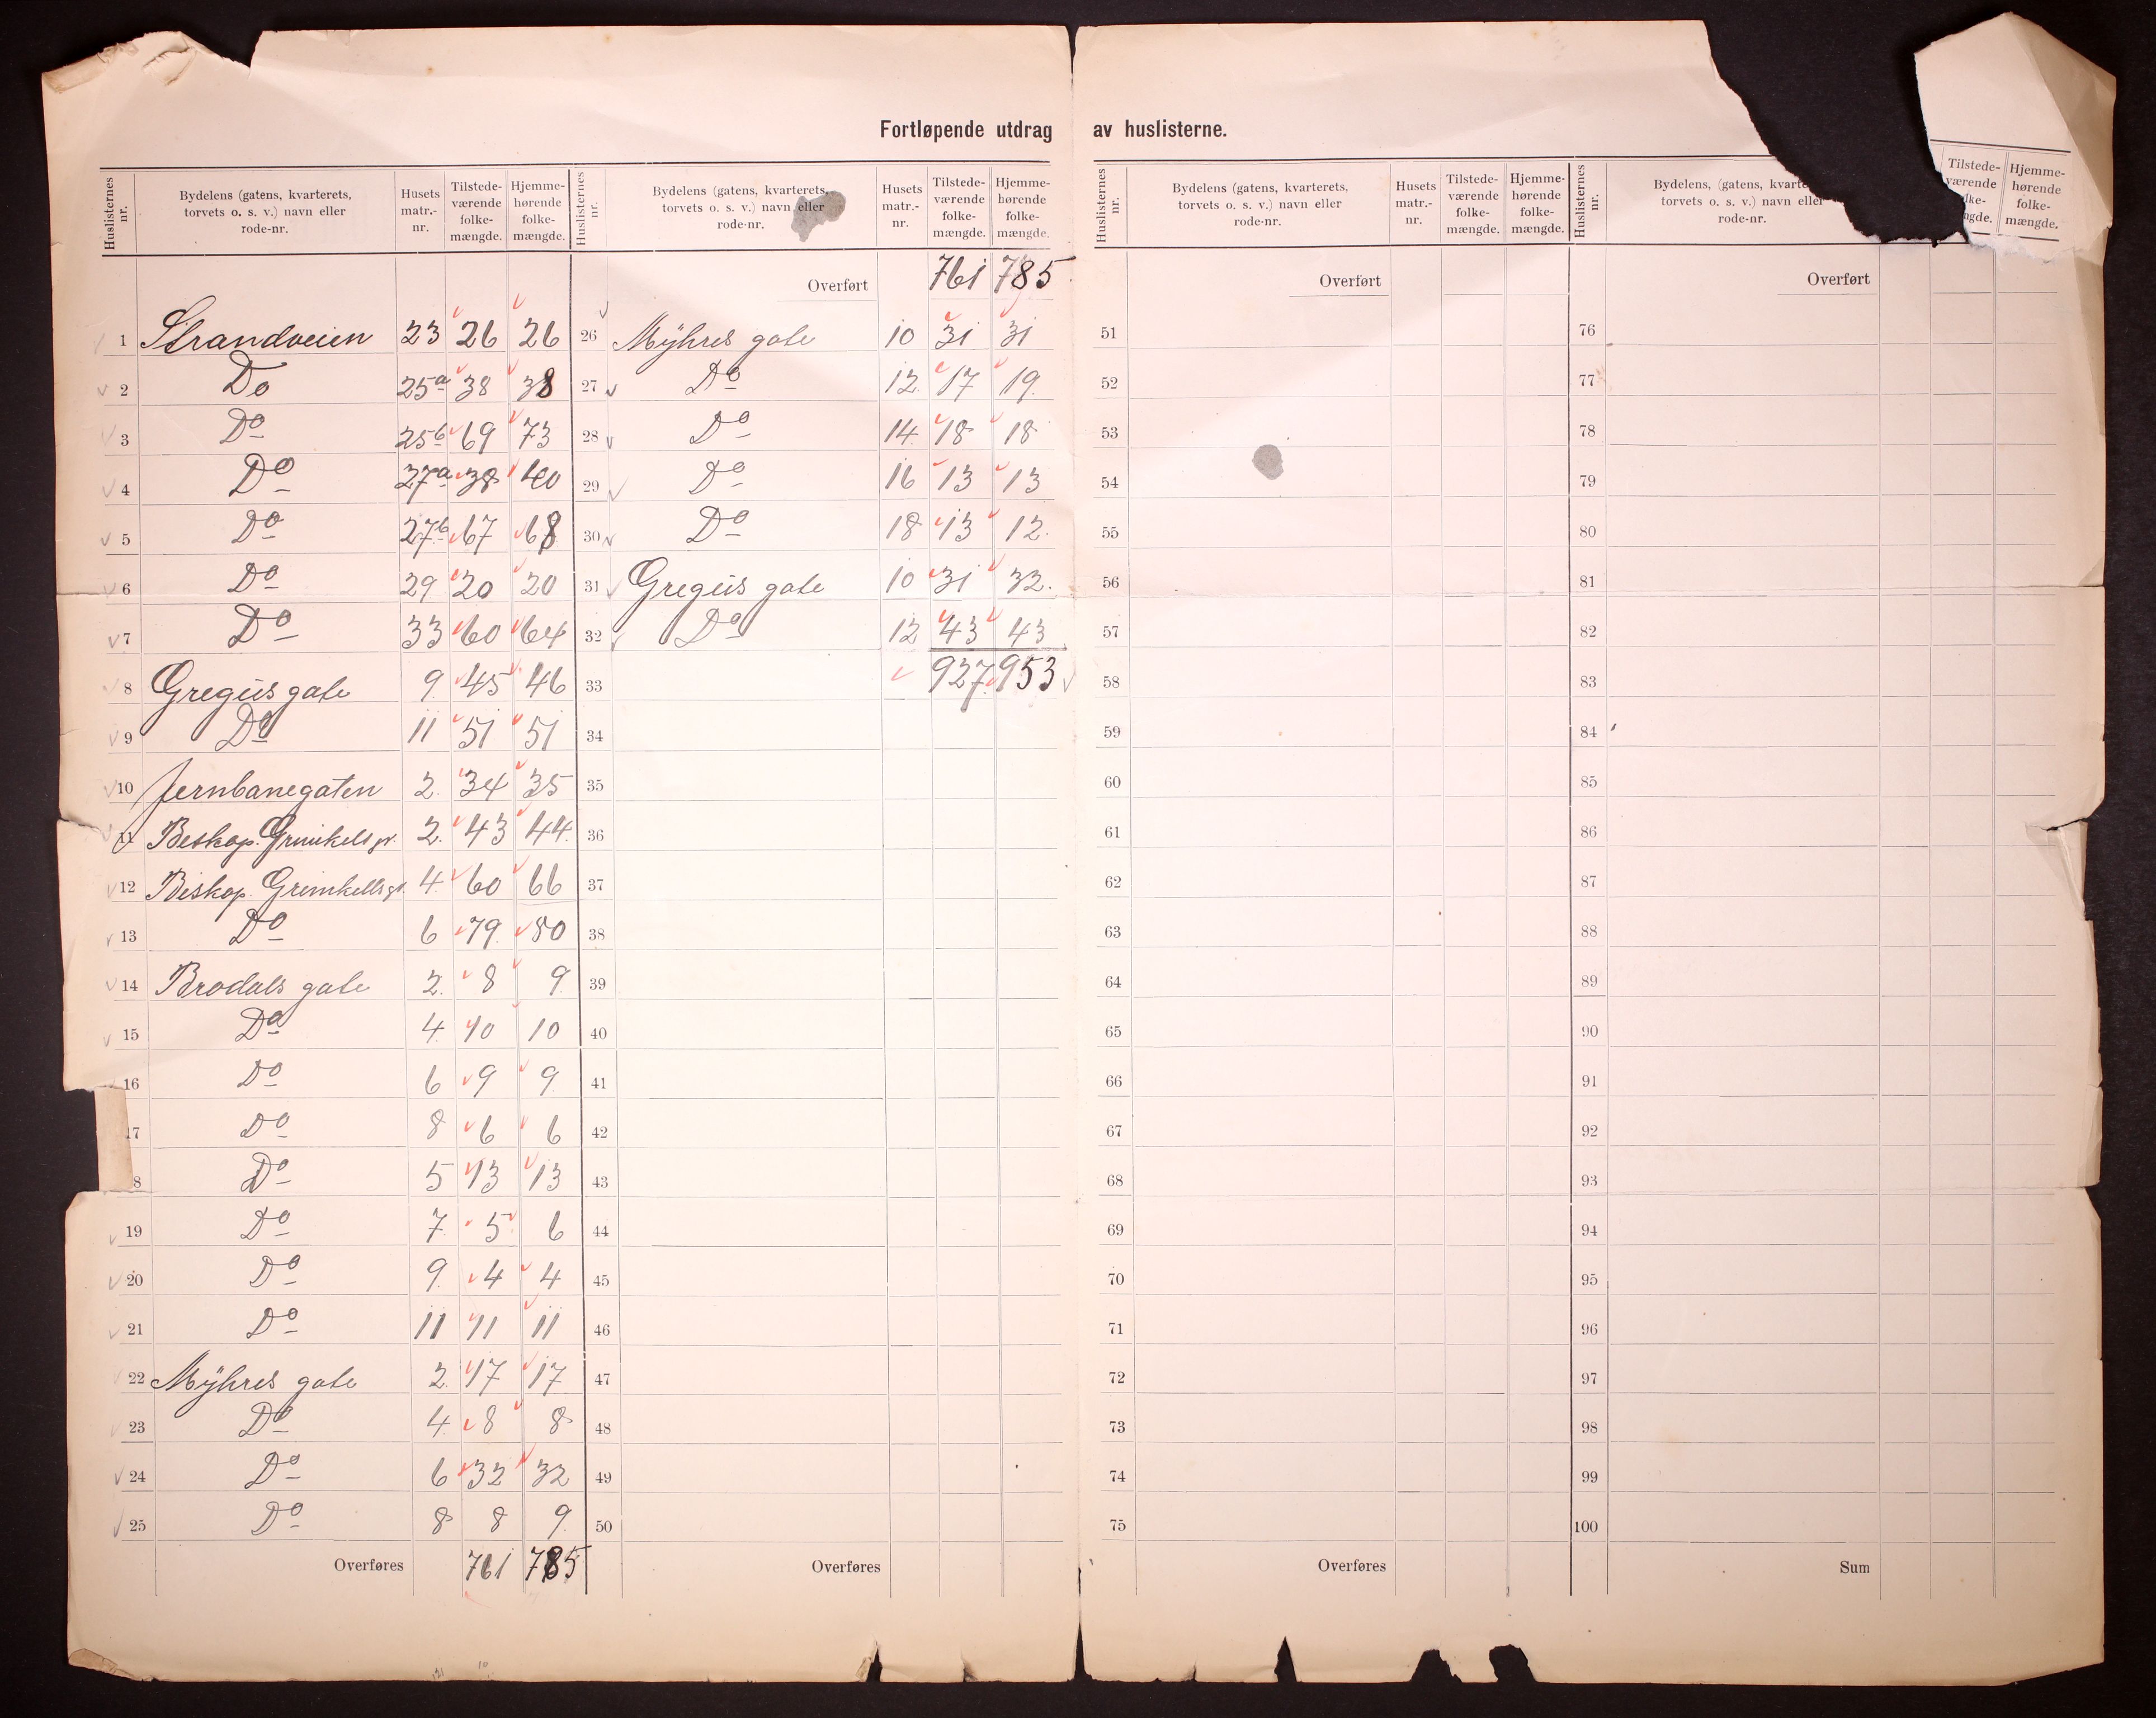 Fortløpende utdrag av huslisterne.
Huslisternes nr. Bydelens (gatens, kvarterets, torvets o. s. v.) navn eller rode-nr. Husets matr.-nr. Tilstede-værende folke-mængde. Hjemme-hørende folke-mængde.
1 Strandveien 23 26 26
2 Do 25a 38 38
3 Do 25b 69 73
4 Do 27a 38 40
5 Do 27b 67 68
6 Do 29 20 20
7 Do 33 60 64
8 Gregus gate 9 45 46
9 Do 11 51 51
10 Jernbanegaten 2. 34 35
11 Beskop. Grimkels gt. 2. 43 44.
12 Biskop. Grimkells gt. 4. 60 66
13 Do 6 79 80
14 Brodals gate 2. 8 9.
15 Do 4. 10 10
16 Do 6 9 9.
17 Do 8 6 6
8 Do 5 13 13
19 Do 7. 5 6
20 Do 9. 4 4
21 Do 11 11 11
22 Mÿhres gate 2. 17 17
23 Do 4. 8 8
24 Do 6 32 32
25 Do 8 8 9.
Overføres 761 785
Huslisternes nr. Bydelens (gatens, kvarterets, torvets o. s. v.) navn eller rode-nr. Husets matr.-nr. Tilstede-værende folke-mængde. Hjemme-hørende folke-mængde.
Overført 761 785
26 Mÿhres gate 10 31 31
27 Do 12. 17 19.
28 Do 14. 18 18
29 Do 16 13 13
30 Do 18 13 12.
31 Gregus gate 10 31 32.
32 Do 12 43 43
33 927. 953
34
35
36
37
38
39
40
41
42
43
44
45
46
47
48
49
50
Overføres
Huslisternes nr. Bydelens (gatens, kvarterets, torvets o. s. v.) navn eller rode-nr. Husets matr.-nr. Tilstede-værende folke-mængde. Hjemme-hørende folke-mængde.
Overført
51
52
53
54
55
56
57
58
59
60
61
62
63
64
65
66
67
68
69
70
71
72
73
74
75
Overføres
Huslisternes nr. Bydelens, (gatens, torvets o. s. v.) navn eller rode-nr. Tilstede-værende Hjemme-hørende folke-mængde.
Overført
76
77
78
79
80
81
82
83
84
85
86
87
88
89
90
91
92
93
94
95
96
97
98
99
100
Sum